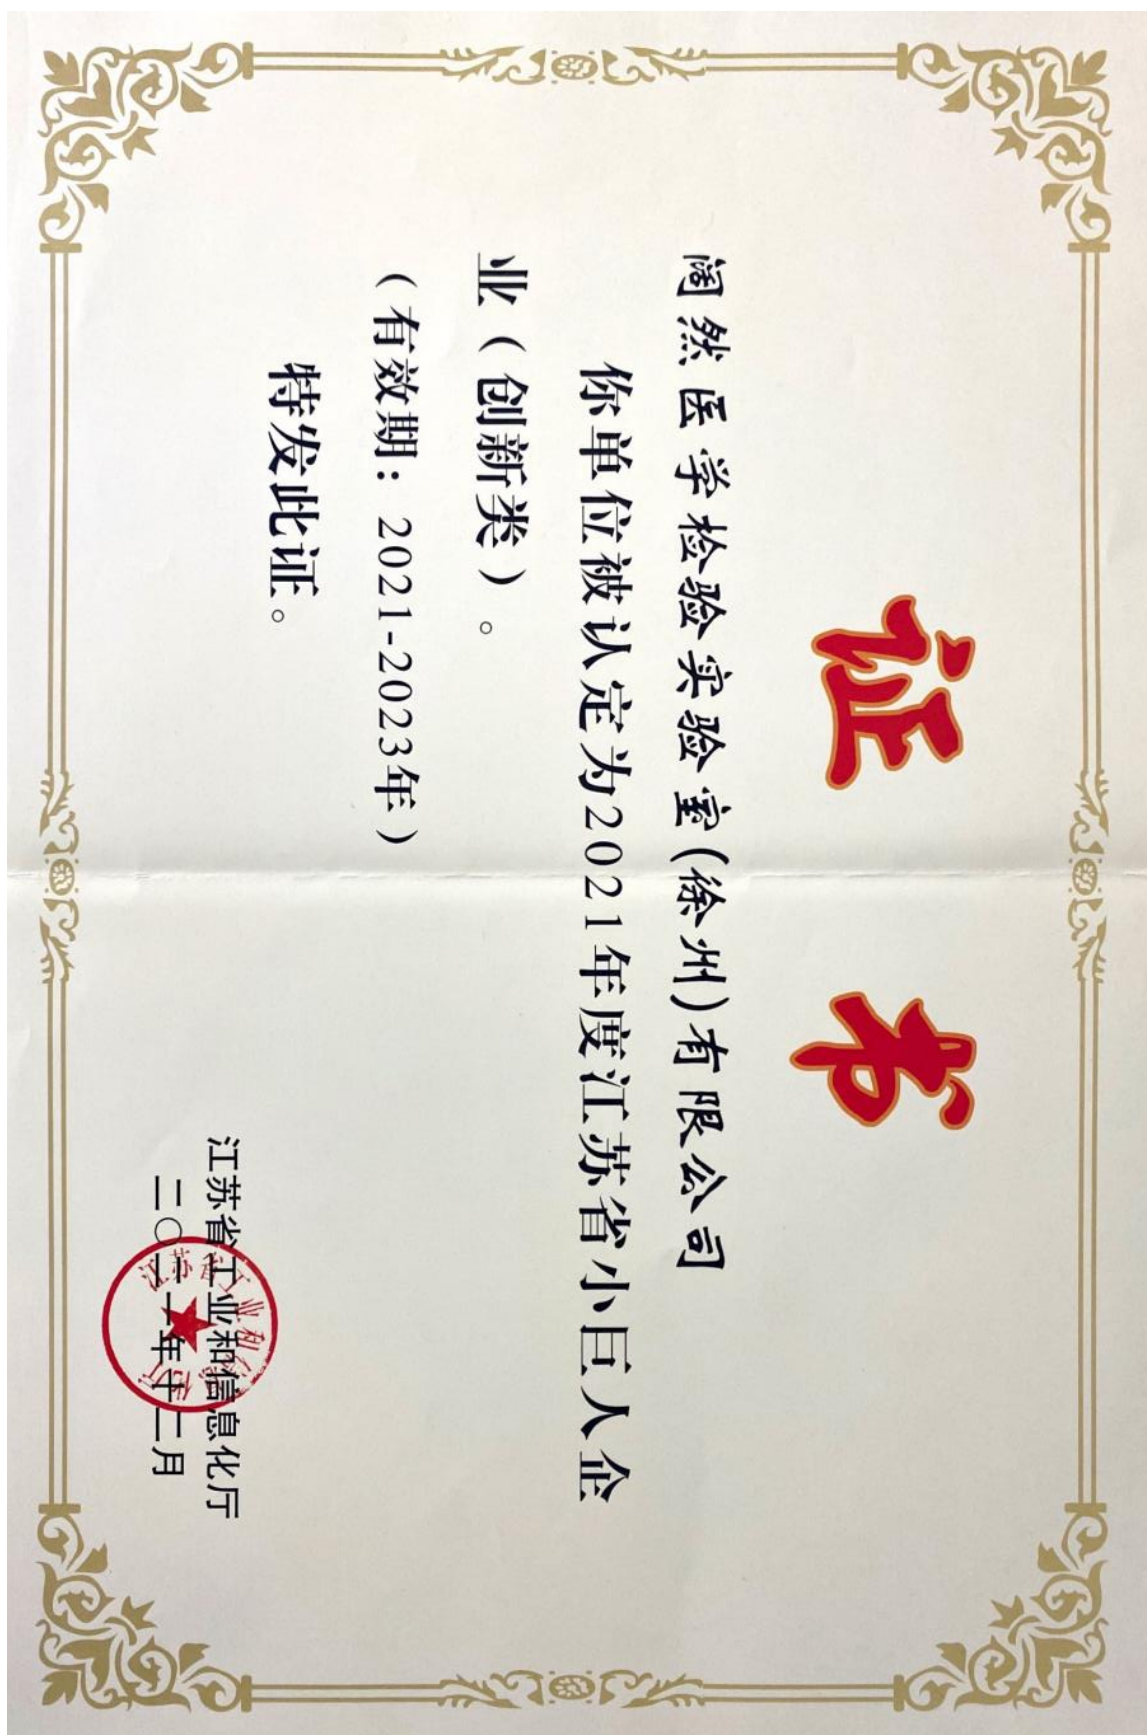 证 书
阔然医学检验实验室(徐州)有限公司
你单位被认定为2021年度江苏省小巨人企
业(创新类)。
(有效期: 2021-2023年)
特发此证。
江苏省工业和信息化厅
二〇二一年十二月
江苏省工业和信息化厅